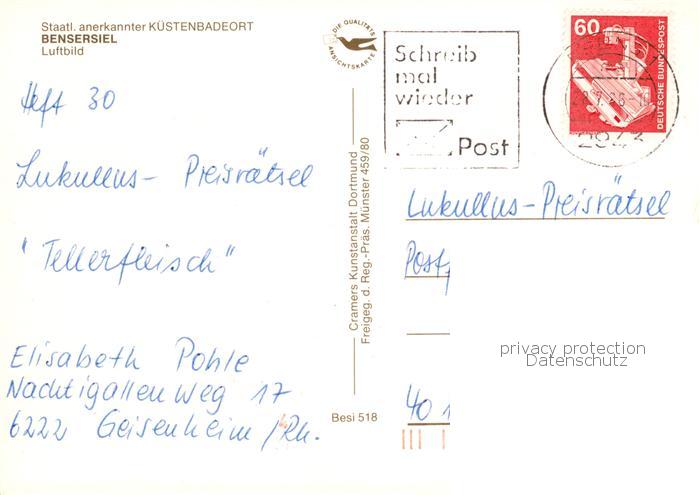 Staatl. anerkannter KÜSTENBADEORT
BENSERSIEL
Luftbild
DIE QUALITÄTS
ANSICHTSKARTE
Schreib
mal
wieder
Post
60
DEUTSCHE BUNDESPOST
2943
Heft 30
Lukullus- Preisrätsel
"Tellerfleisch"
Elisabeth Pohle
Nachtigallenweg 17
6222 Geisenheim/Rh.
Cramers Kunstanstalt Dortmund
Freigeg. d. Reg.-Präs. Münster 459/80
Besi 518
Lukullus-Preisrätsel
Postf
40
privacy protection
Datenschutz